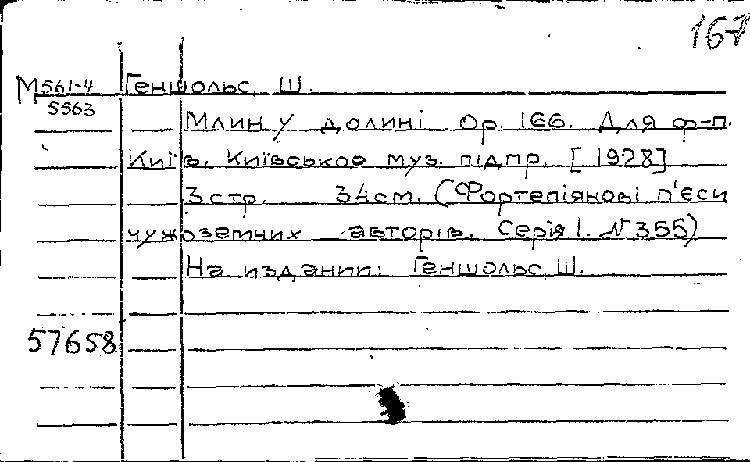 167
М561-4 Геншольс, Ш.
5563
Млин у долині Op. 166. Для ф-п.
Київ. Київське муз. підпр. [1928]
3 стр. 34 см. (Фортепіянові п'єси
чужоземних авторів. Серія I. N 355)
На издании: Геншольс Ш.
57658